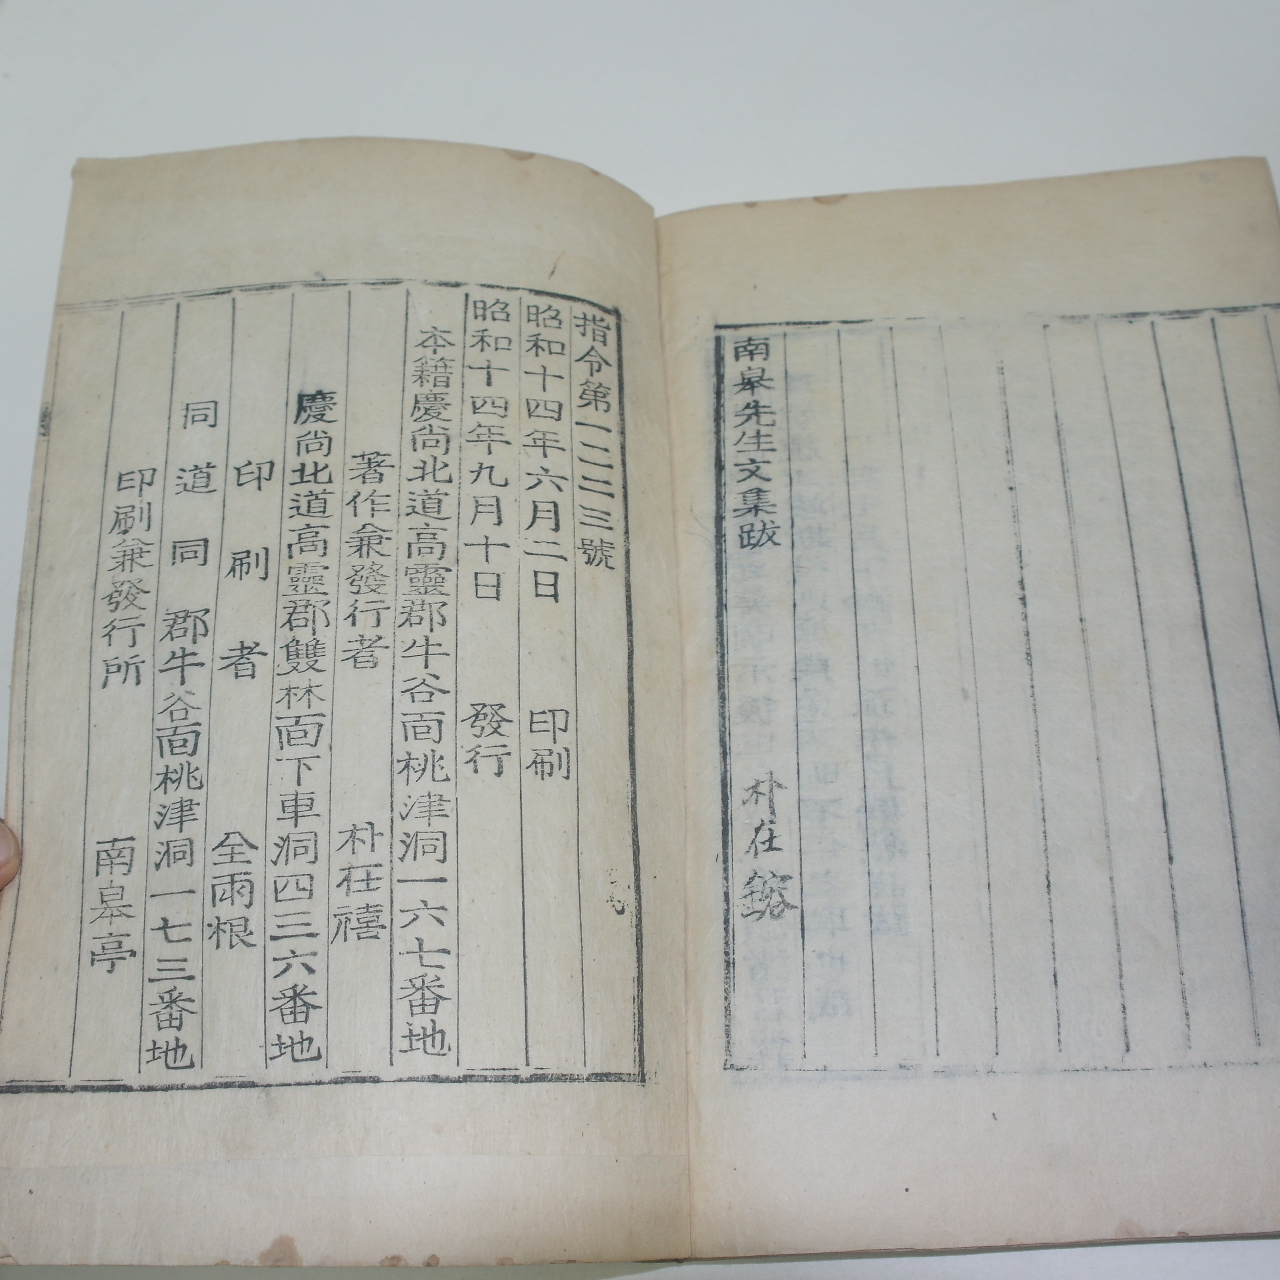 南皐先生文集跋 朴在鎔
指令第一二二三號
昭和十四年六月二日 印刷
昭和十四年九月十日 發行
本籍慶尙北道高靈郡牛谷面桃津洞一六七番地
著作兼發行者 朴在禧
慶尙北道高靈郡雙林面下車洞四三六番地
印刷者 全雨根
同道同郡牛谷面桃津洞一七三番地
印刷兼發行所 南皐亭